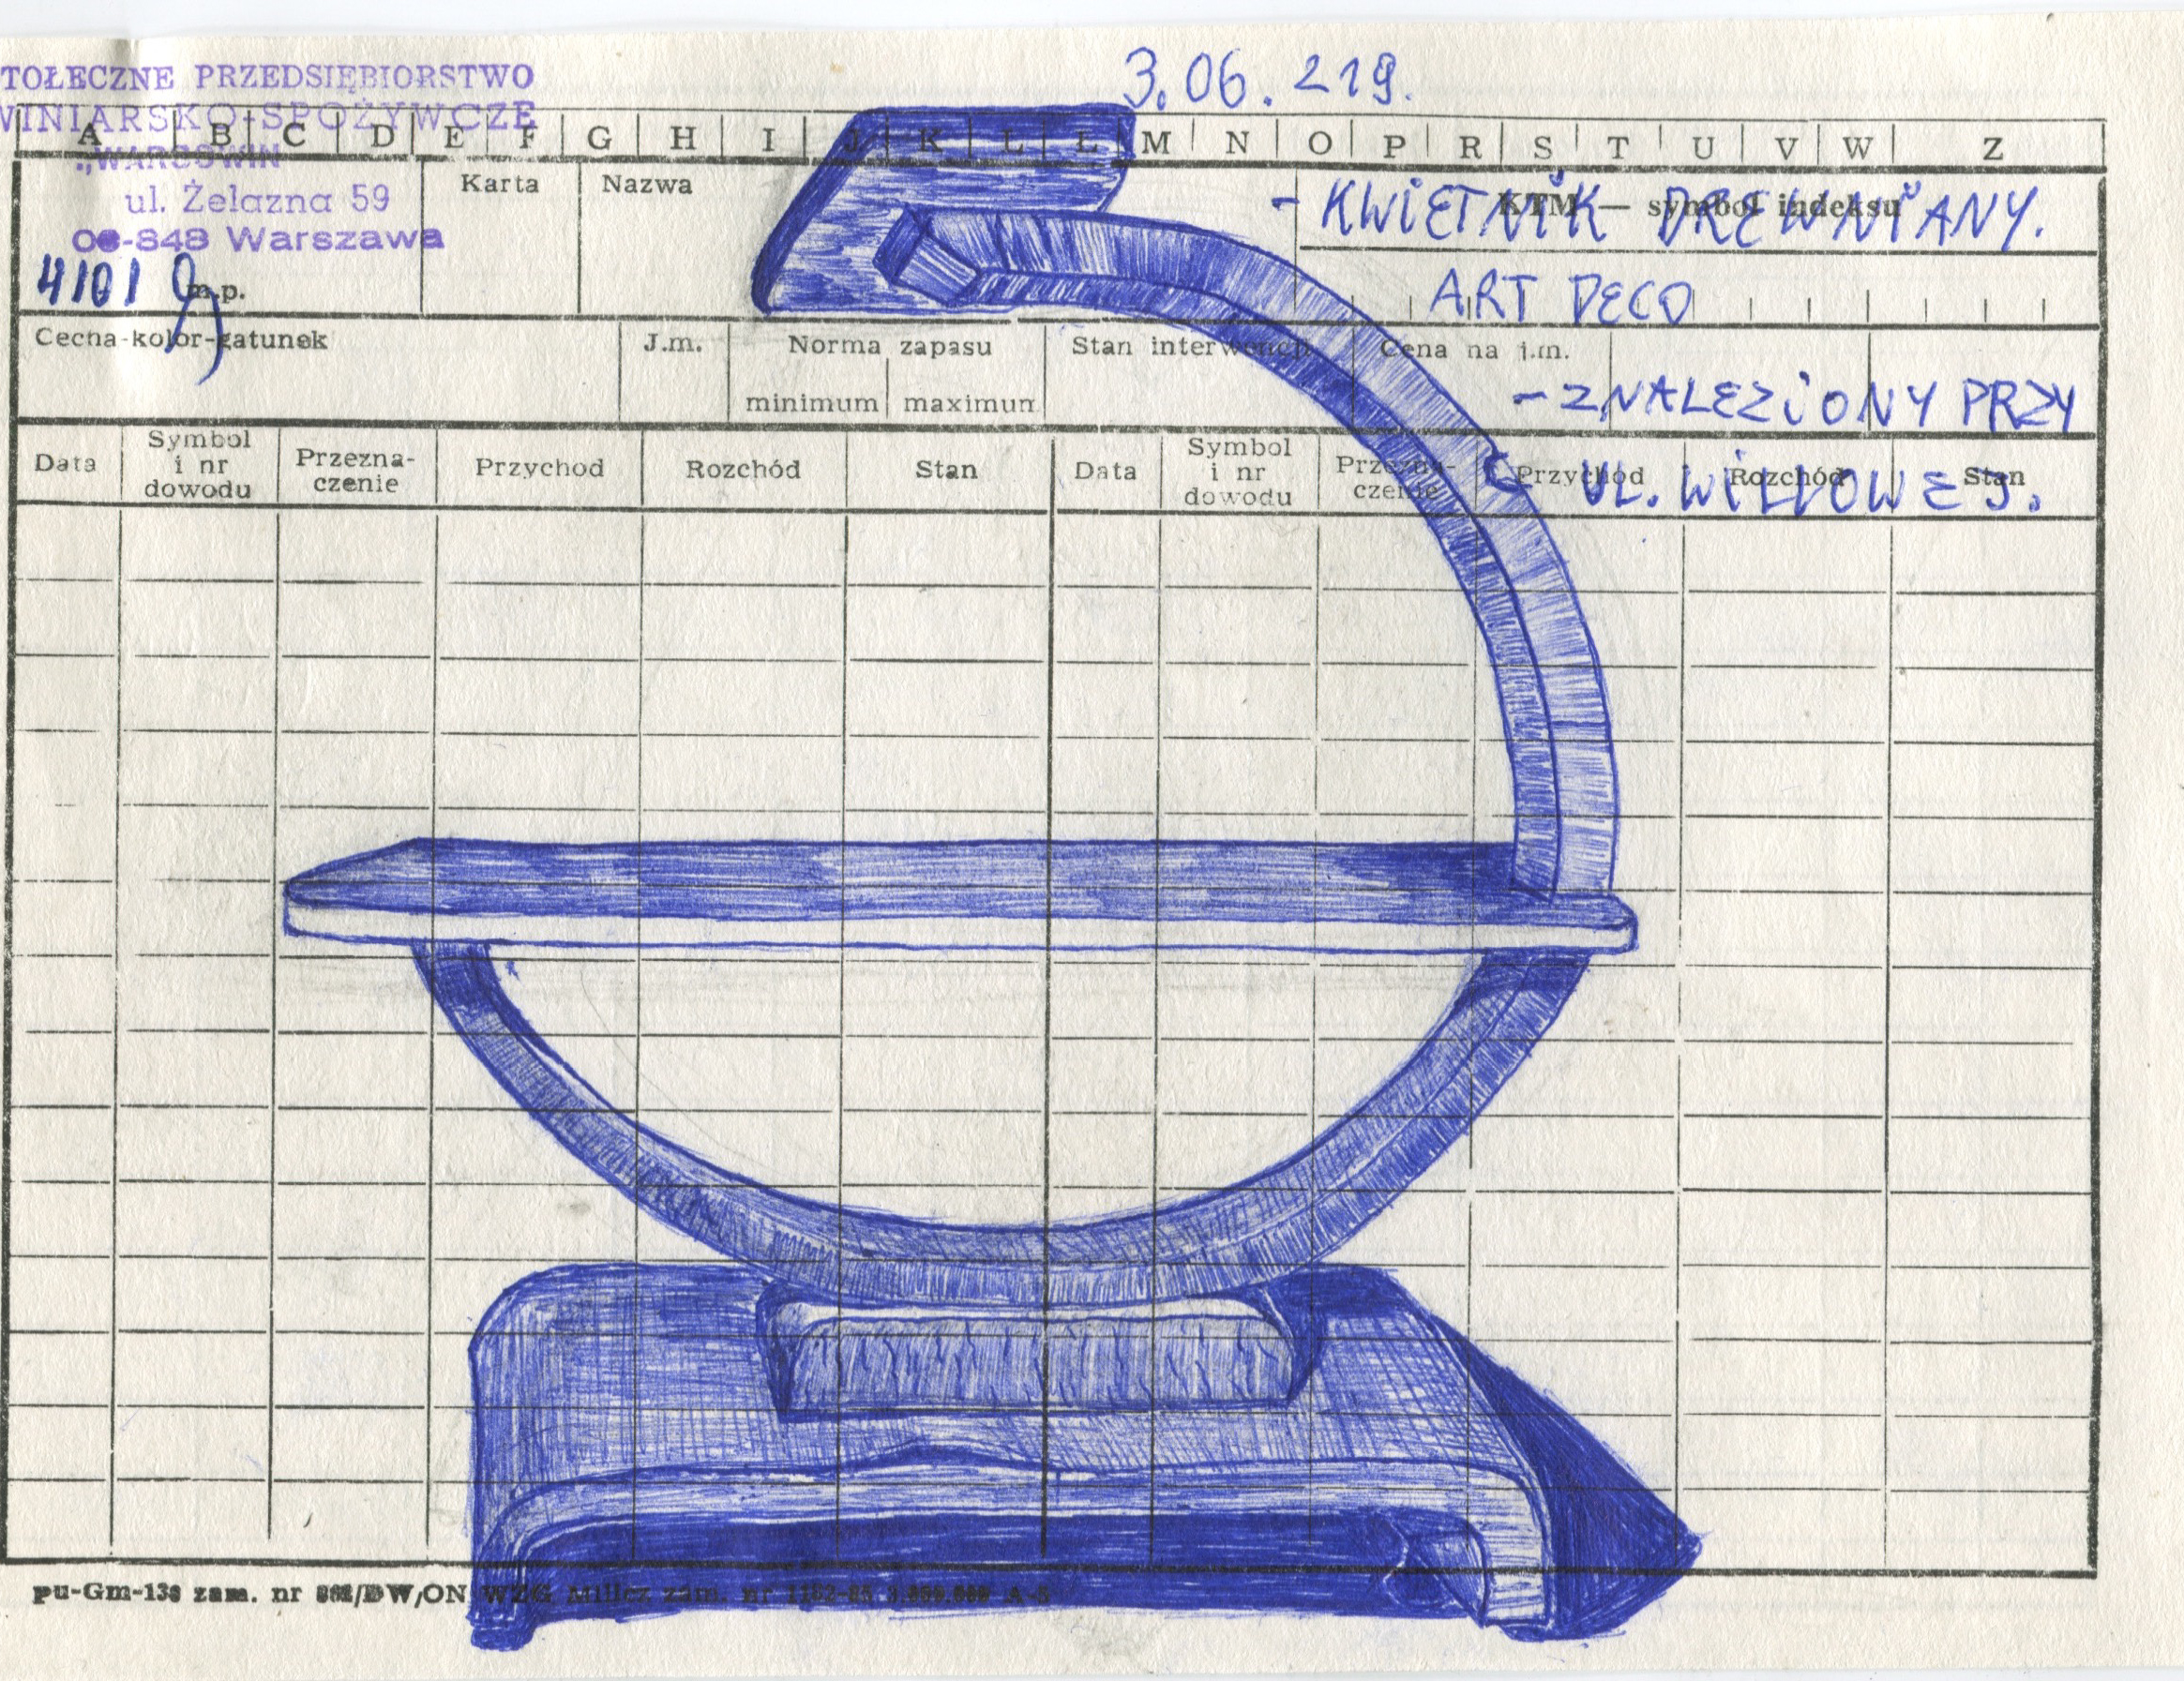 3.06.219.
TOŁECZNE PRZEDSIĘBIORSTWO
WINIARSKO-SPOŻYWCZE
„WARSOWIN
ul. Żelazna 59
00-848 Warszawa
4101
m.p.
A B C D E F G H I J K L Ł M N O P R S T U V W Z
Karta
Nazwa
KTM — symbol indeksu
- KWIETNIK DREWNIANY.
ART DECO
Cecha-kolor-gatunek
J.m.
Norma zapasu
minimum
maximum
Stan interwencji
Cena na j.m.
- ZNALEZIONY PRZY
UL. WILLOWEJ.
Data
Symbol i nr dowodu
Przezna-czenie
Przychód
Rozchód
Stan
Data
Symbol i nr dowodu
Przezna-czenie
Przychód
Rozchód
Stan
pu-Gm-138 zam. nr /DW/ON WZG Milicz zam. nr 1182-85 A-5